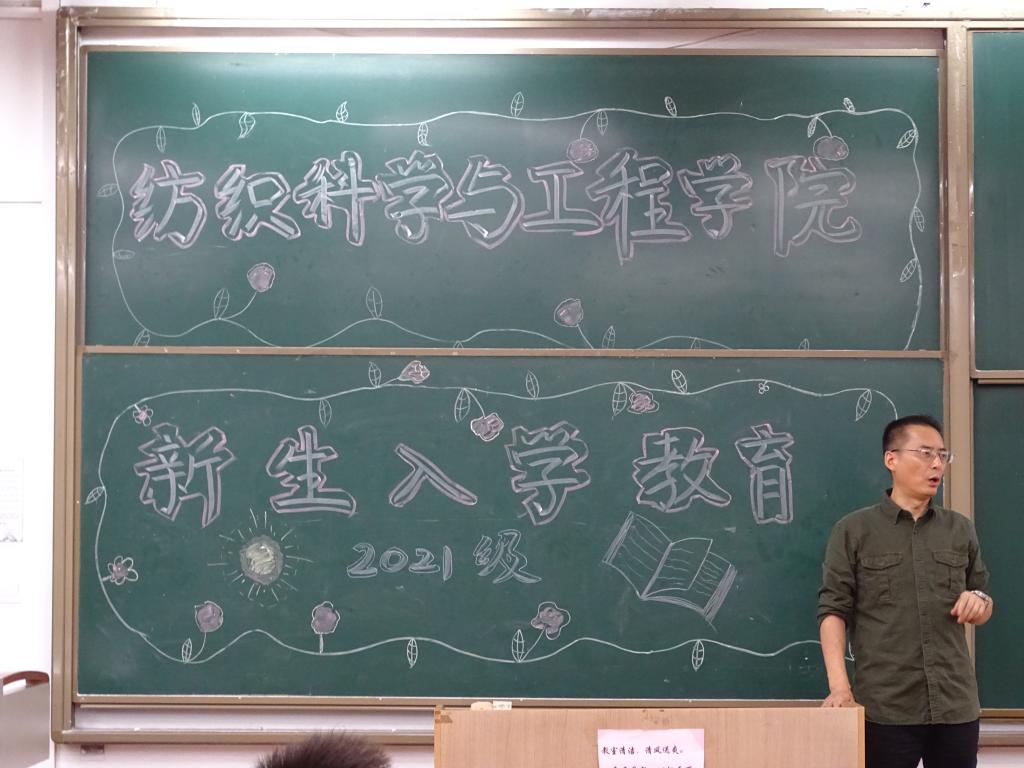 纺织科学与工程学院
新生入学教育
2021级
教室清洁，清风送爽。